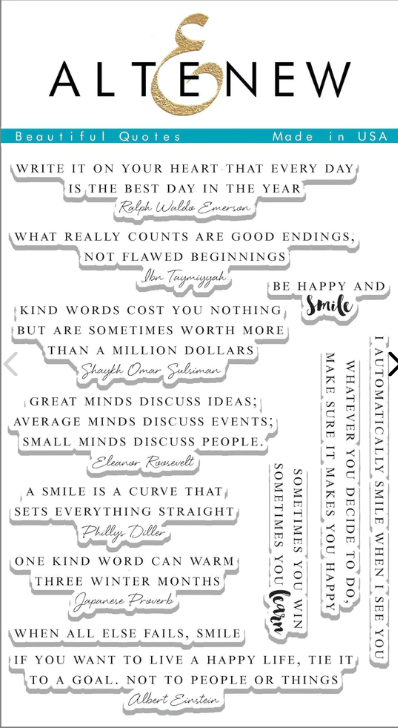 ALTENEW
Beautiful Quotes Made in USA
WRITE IT ON YOUR HEART THAT EVERY DAY
IS THE BEST DAY IN THE YEAR
Ralph Waldo Emerson
WHAT REALLY COUNTS ARE GOOD ENDINGS,
NOT FLAWED BEGINNINGS
Ibn Taymiyyah
BE HAPPY AND
Smile
KIND WORDS COST YOU NOTHING
BUT ARE SOMETIMES WORTH MORE
THAN A MILLION DOLLARS
Shaykh Omar Suleiman
GREAT MINDS DISCUSS IDEAS;
AVERAGE MINDS DISCUSS EVENTS;
SMALL MINDS DISCUSS PEOPLE.
Eleanor Roosevelt
A SMILE IS A CURVE THAT
SETS EVERYTHING STRAIGHT
Phillys Diller
ONE KIND WORD CAN WARM
THREE WINTER MONTHS
Japanese Proverb
WHEN ALL ELSE FAILS, SMILE
IF YOU WANT TO LIVE A HAPPY LIFE, TIE IT
TO A GOAL. NOT TO PEOPLE OR THINGS
Albert Einstein
SOMETIMES YOU WIN
SOMETIMES YOU learn
WHATEVER YOU DECIDE TO DO,
MAKE SURE IT MAKES YOU HAPPY
I AUTOMATICALLY SMILE WHEN I SEE YOU